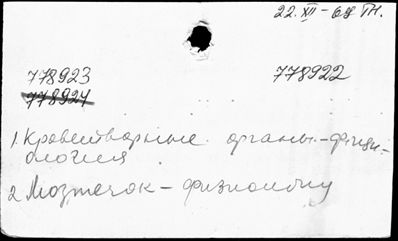 22. XII - 68 ТН.
778923 778922
778924
1. Кроветворные органы-физи-
ология
2. Мозжечок - физиологии